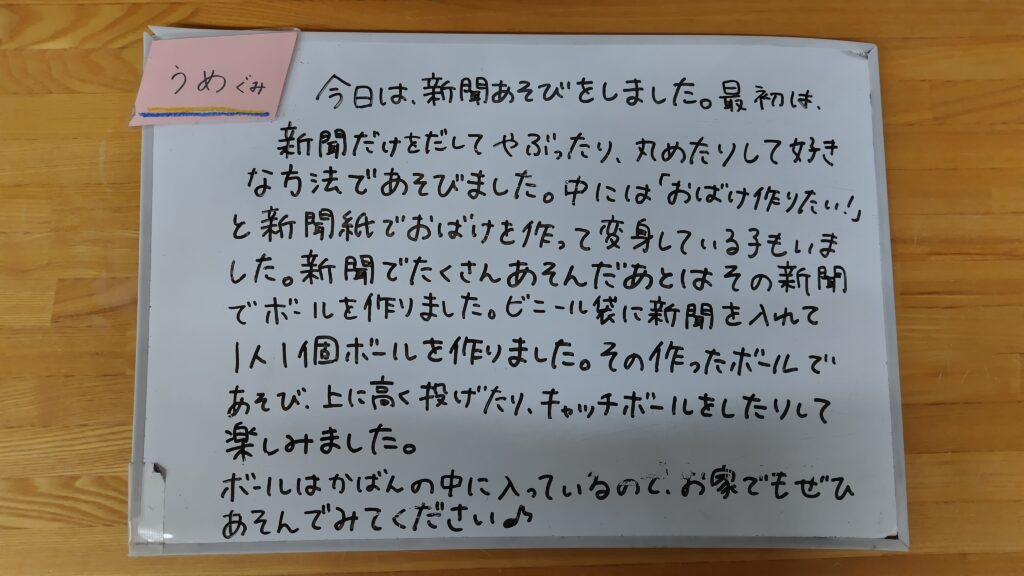 うめぐみ
今日は、新聞あそびをしました。最初は、
新聞だけをだしてやぶったり、丸めたりして好き
な方法であそびました。中には「おばけ作りたい!」
と新聞紙でおばけを作って変身している子もいま
した。新聞でたくさんあそんだあとはその新聞
でボールを作りました。ビニール袋に新聞を入れて
1人1個ボールを作りました。その作ったボールで
あそび、上に高く投げたり、キャッチボールをしたりして
楽しみました。
ボールはかばんの中に入っているので、お家でもぜひ
あそんでみてください♪